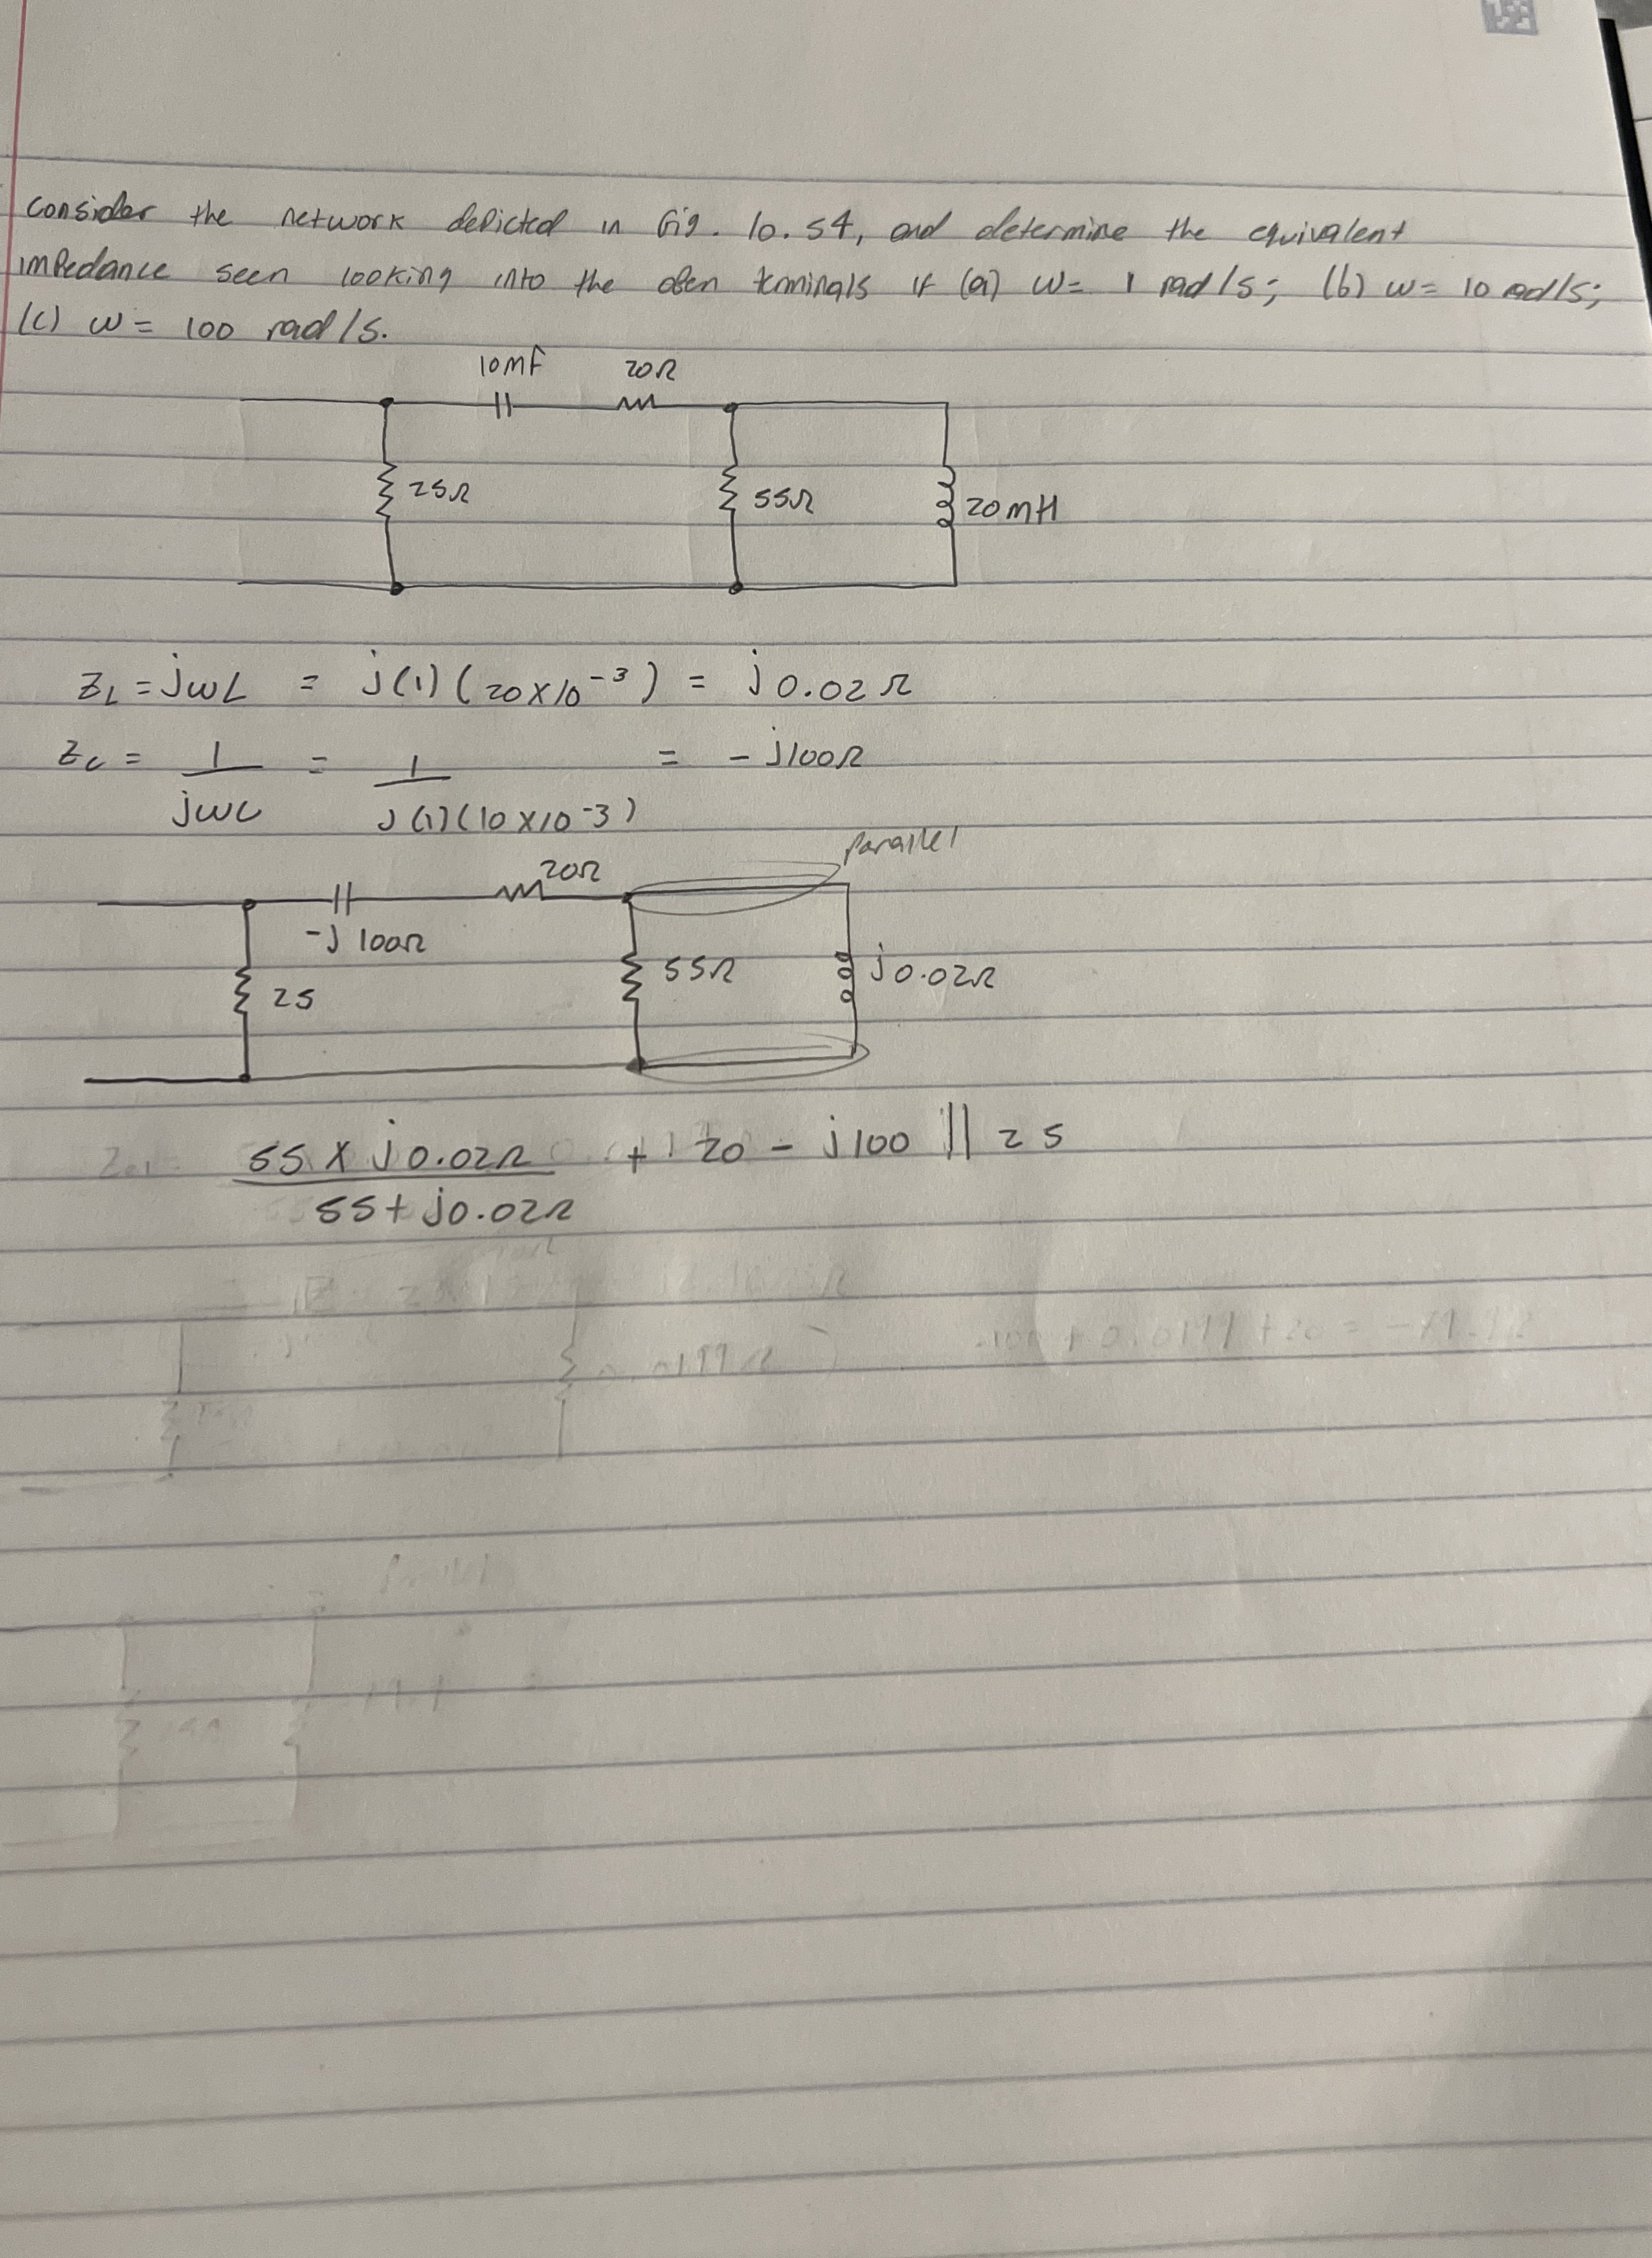 consider the network depicted in Fig. 10.54, and determine the equivalent
impedance seen looking into the open terminals if (a) ω= 1 rad/s; (b) ω= 10 rad/s;
(c) ω = 100 rad/s.
10mF 20Ω
25Ω 55Ω 20mH
ZL = jωL = j(1)(20×10⁻³) = j0.02Ω
Zc = 1/jωC = 1/j(1)(10×10⁻³) = -j100Ω
parallel
20Ω
-j100Ω
25 55Ω j0.02Ω
55 × j0.02Ω / 55 + j0.02Ω + 20 - j100 || 25